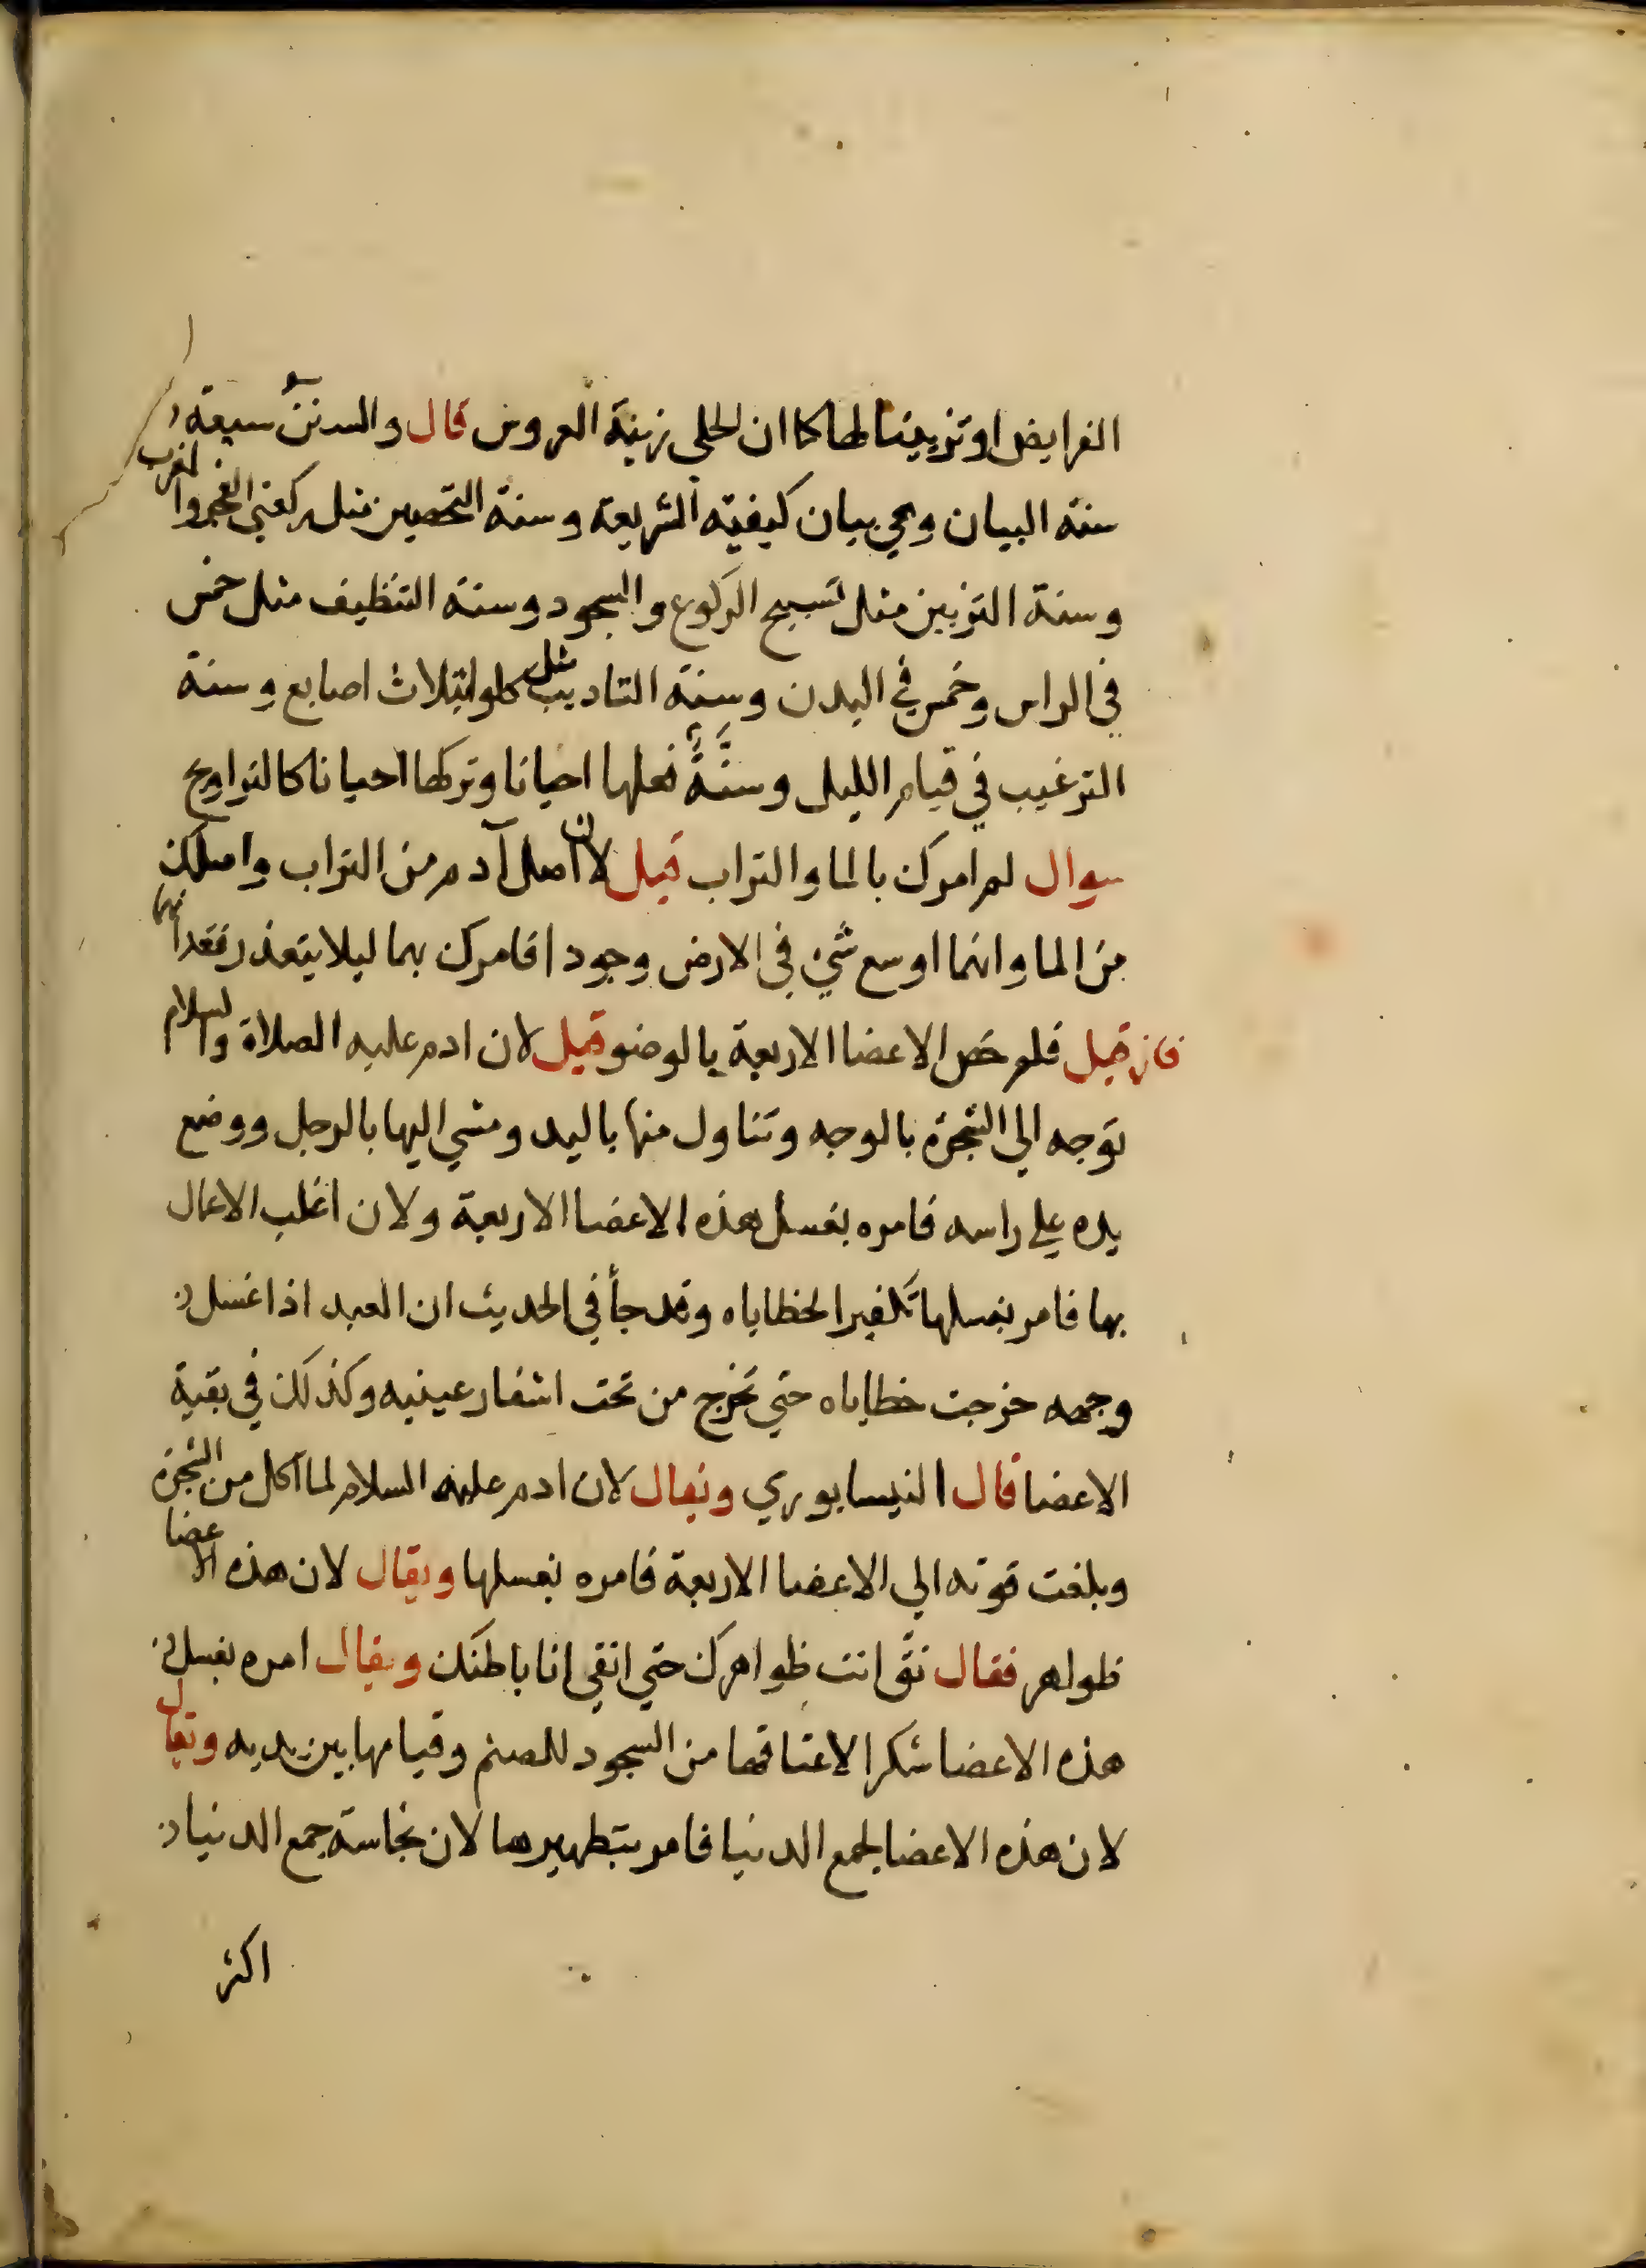 الفرايض او تزيينا لها كما ان الحلي زينة العروس قال والسنن سبعة
سنة البيان وهي بيان كيفية الشريعة وسنة التحصين مثل ركعتي الفجر والمغرب
وسنة التزيين مثل تسبيح الركوع والسجود وسنة التنظيف مثل خمس
في الراس وخمس في البدن وسنة التاديب مثل كلوا بثلاث اصابع وسنة
الترغيب في قيام الليل وسنة فعلها احيانا وتركها احيانا كالتراويح
سوال لم امرك بالما والتراب قيل لان اصل آدم من التراب واصلك
من الما وانهما اوسع شي في الارض وجودا فامرك بهما ليلا يتعذر فقدانهما
فان قيل فلم خص الاعضا الاربعة بالوضو قيل لان ادم عليه الصلاة والسلام
توجه الي الشجرة بالوجه وتناول منها باليد ومشي اليها بالرجل ووضع
يده علي راسه فامره بغسل هذه الاعضا الاربعة ولان اغلب الاعمال
بها فامر بغسلها تكفيرا لخطاياه وقد جأ في الحديث ان العبد اذا غسل
وجهه خرجت خطاياه حتي تخرج من تحت اشفار عينيه وكذلك في بقية
الاعضا قال النيسابوري ويقال لان ادم عليه السلام لما اكل من الشجرة
وبلغت قوته الي الاعضا الاربعة فامره بغسلها ويقال لان هذه الاعضا
ظواهر فقال نقّ انت ظواهرك حتي انقي انا باطنك ويقال امره بغسل
هذه الاعضا شكرا لاعتاقها من السجود للصنم وقيامها بين يديه ويقال
لان هذه الاعضا لجمع الدنيا فامر بتطهيرها لان نجاسة جمع الدنيا
اكثر